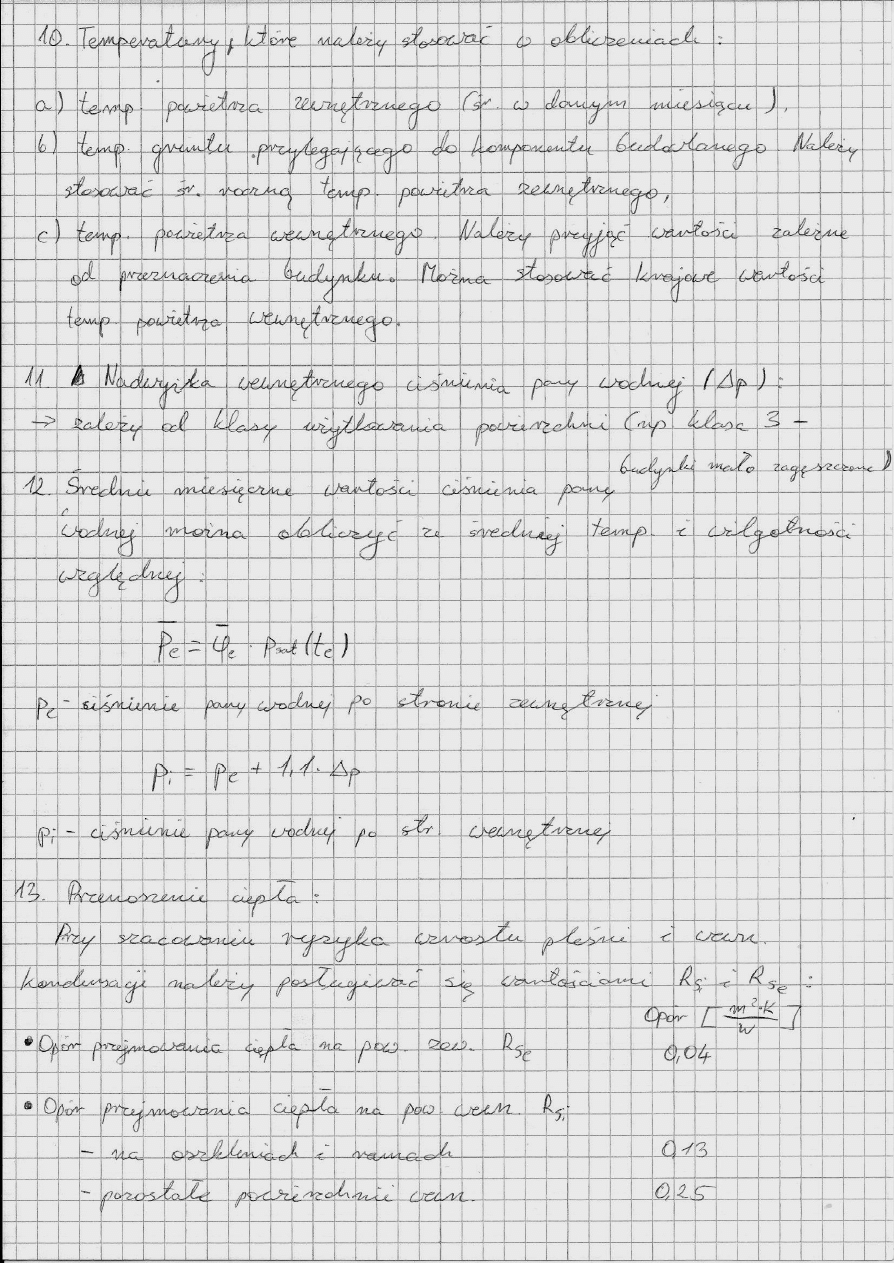 10. Temperatury, które należy stosować w obliczeniach:
a) temp. powietrza zewnętrznego (śr. w danym miesiącu),
b) temp. gruntu przylegającego do komponentu budowlanego. Należy
stosować śr. roczną temp. powietrza zewnętrznego,
c) temp. powietrza wewnętrznego. Należy przyjąć wartości zależne
od przeznaczenia budynku. Można stosować krajowe wartości
temp. powietrza wewnętrznego.
11. Nadwyżka wewnętrznego ciśnienia pary wodnej (Δp):
→ zależy od klasy użytkowania powierzchni (np. klasa 3 –
budynki mało zagęszczone)
12. Średnie miesięczne wartości ciśnienia pary
wodnej można obliczyć ze średniej temp. i wilgotności
względnej:
p̄e = φ̄e · psat(te)
pe - ciśnienie pary wodnej po stronie zewnętrznej
pi = pe + 1,1 · Δp
pi - ciśnienie pary wodnej po str. wewnętrznej
13. Przenoszenie ciepła:
Przy szacowaniu ryzyka wzrostu pleśni i wewn.
kondensacji należy posługiwać się wartościami Rsi i Rse:
Opór [m²·K/W]
• Opór przejmowania ciepła na pow. zew. Rse 0,04
• Opór przejmowania ciepła na pow. wewn. Rsi
- na oszkleniach i ramach 0,13
- pozostałe powierzchnie wewn. 0,25